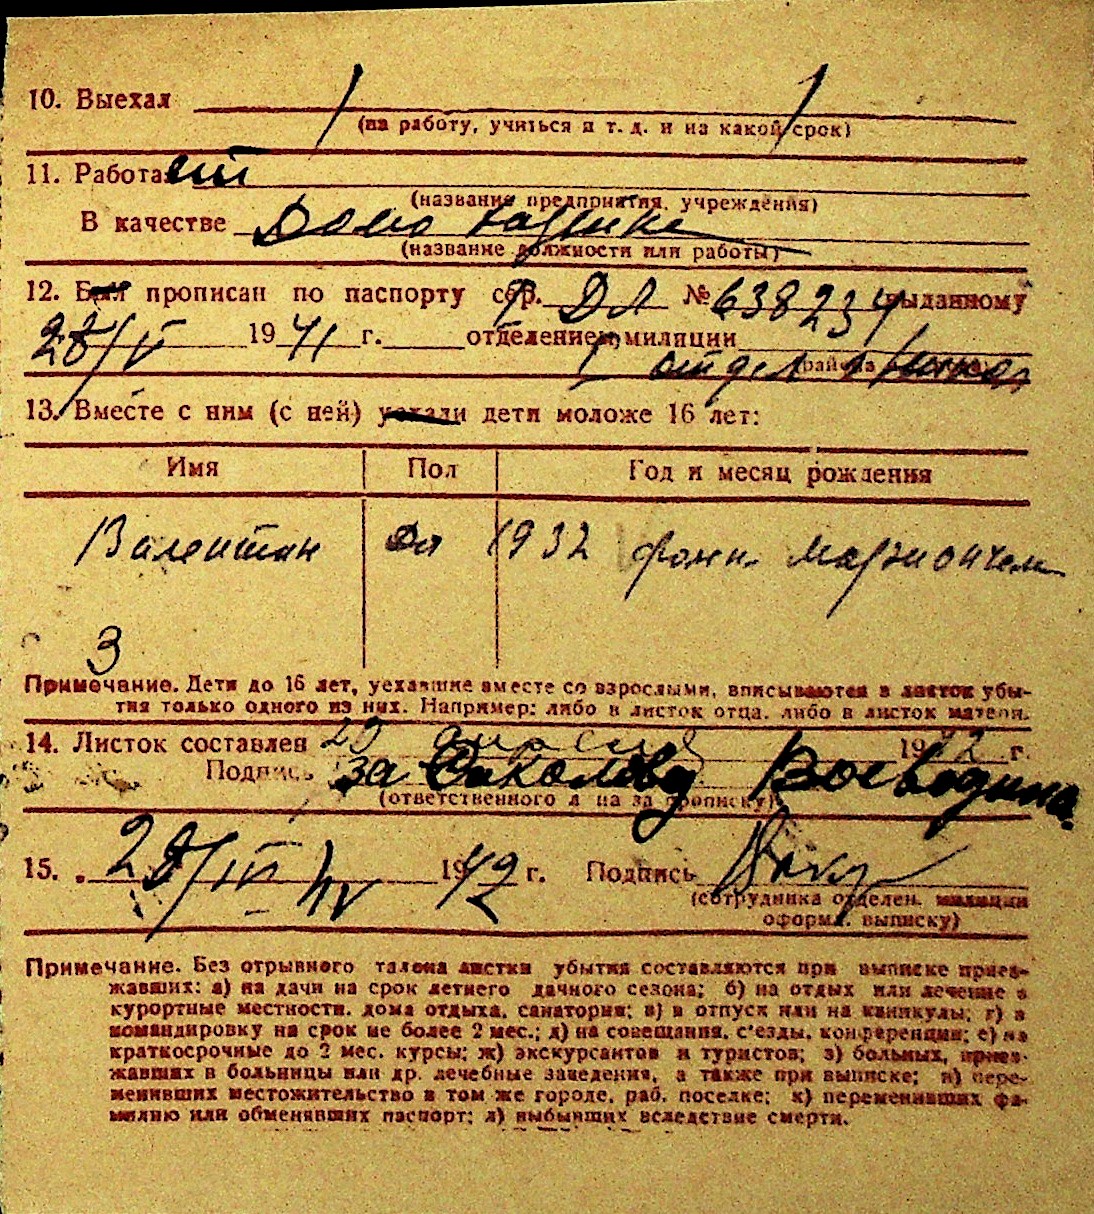 10. Выехал
(на работу, учиться и т. д. и на какой срок)
11. Работа
(название предприятия, учреждения)
В качестве Дома
(название должности или работы)
12. Был прописан по паспорту сер. ДЛ № 638234 выданному
28/VI 1941 г. отделением милиции
района
13. Вместе с ним (с ней) уехали дети моложе 16 лет:
Имя Пол Год и месяц рождения
Валентин 1932
3
Примечание. Дети до 16 лет, уехавшие вместе со взрослыми, вписываются в листок убы-
тия только одного из них. Например: либо в листок отца, либо в листок матери.
14. Листок составлен 29 апреля 1942 г.
Подпись за Соколову Воеводина
(ответственного л на за прописку)
15. 28/IV 1942 г. Подпись
(сотрудника отделен. милиции
оформ. выписку)
Примечание. Без отрывного талона листки убытия составляются при выписке приез-
жавших: а) на дачи на срок летнего дачного сезона; б) на отдых или лечение в
курортные местности, дома отдыха, санатория; в) в отпуск или на каникулы; г) в
командировку на срок не более 2 мес.; д) на совещания, с'езды, конференции; е) на
краткосрочные до 2 мес. курсы; ж) экскурсантов и туристов; з) больных, приез-
жавших в больницы или др. лечебные заведения, а также при выписке; и) пере-
менивших местожительство в том же городе, раб. поселке; к) переменивших фа-
милию или обменявших паспорт; л) выбывших вследствие смерти.